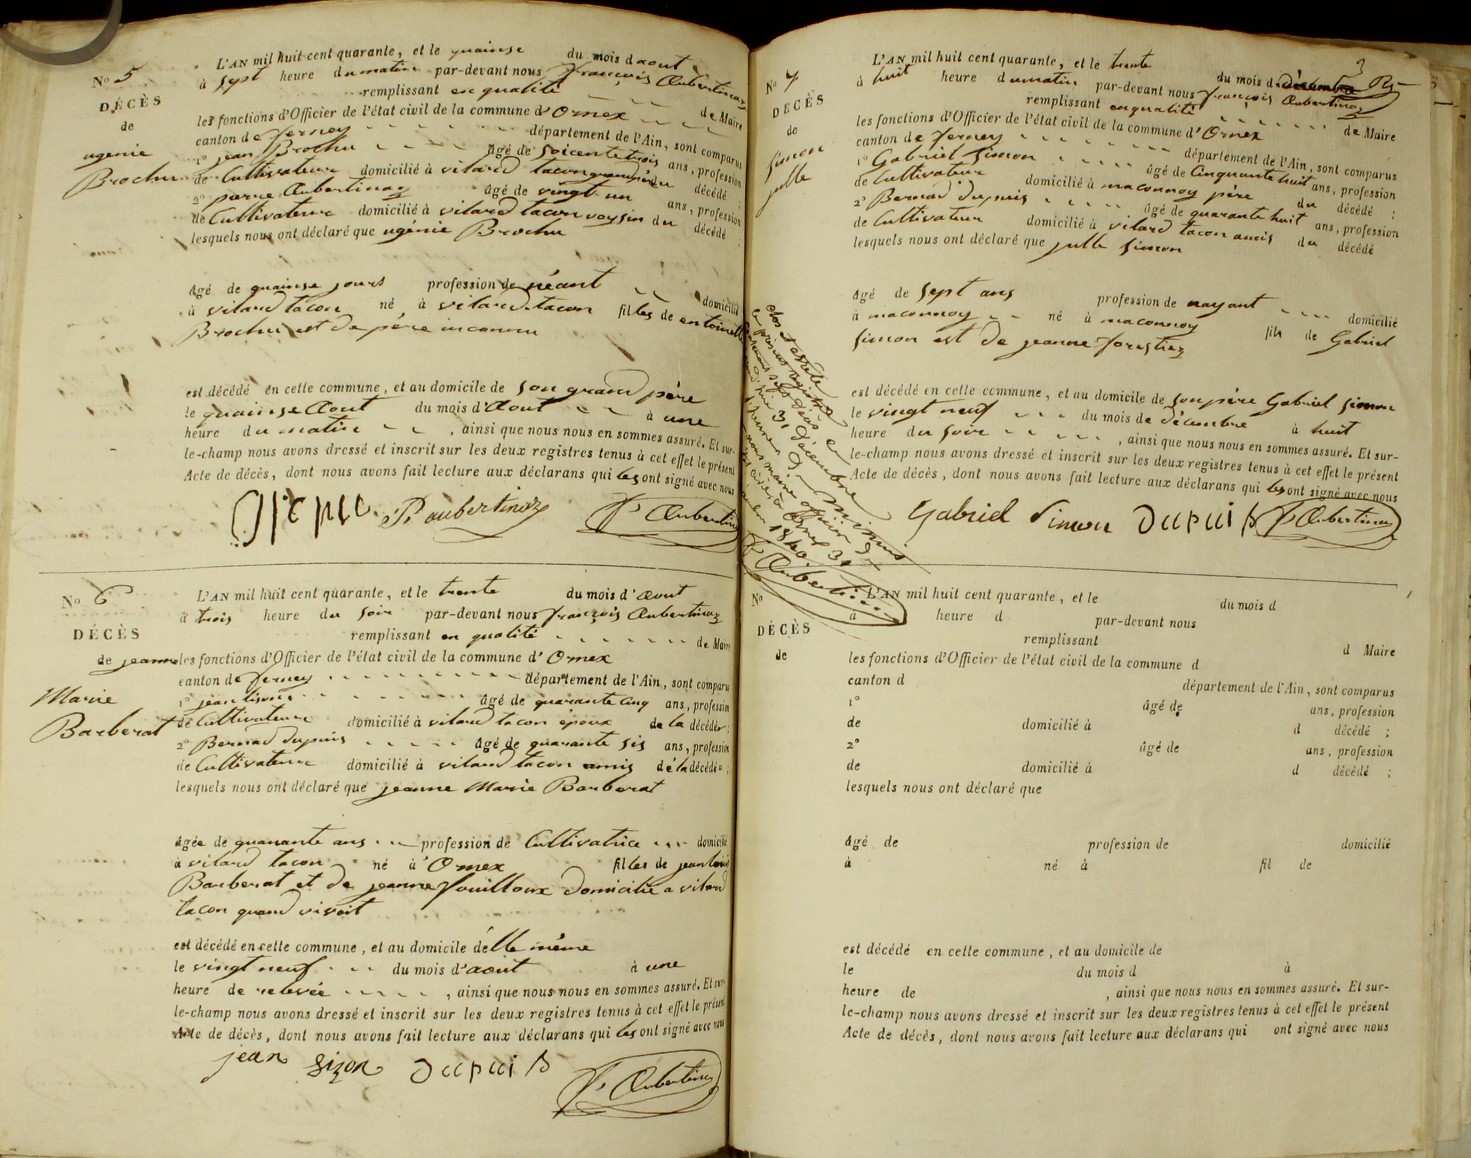 No 5
DÉCÈS
de
ugenie
Brochu
L'AN mil huit cent quarante, et le quainse du mois d'aout
à sept heure du matin par-devant nous françois Aubertinaz
remplissant en qualité de Maire
les fonctions d'Officier de l'état civil de la commune d'Ornex
canton de ferney département de l'Ain, sont comparus
1° jean Brochu âgé de soicente trois ans, profession
de Cultivateur domicilié à vilard tacon grand père du décédé ;
2° pierre Aubertinaz âgé de vingt un ans, profession
de Cultivateur domicilié à vilard tacon voysin du décédé ;
lesquels nous ont déclaré que ugénie Brochu
âgé de quainse jours profession de néant domicilié
à vilard tacon né à vilard tacon filles de entoinette
Brochu et de père inconnu
est décédé en cette commune, et au domicile de son grand père
le quainse Aout du mois d'Aout à une
heure du matin, ainsi que nous nous en sommes assuré. Et sur-
le-champ nous avons dressé et inscrit sur les deux registres tenus à cet effet le présent
Acte de décès, dont nous avons fait lecture aux déclarans qui les ont signé avec nous
P. aubertinaz F Aubertinaz
No 6
DÉCÈS
de jeanne
Marie
Barberat
L'AN mil huit cent quarante, et le trente du mois d'Aout
à trois heure du soir par-devant nous françois Aubertinaz
remplissant en qualité de Maire
les fonctions d'Officier de l'état civil de la commune d'Ornex
canton de ferney département de l'Ain, sont comparus
1° jean âgé de quarante cinq ans, profession
de Cultivateur domicilié à vilard tacon époux de la décédée ;
2° Bernad dupuis âgé de quarante sis ans, profession
de Cultivateur domicilié à vilard tacon amis de la décédée ;
lesquels nous ont déclaré que jeanne Marie Barberat
âgée de quarante ans profession de Cultivatrice domicilié
à vilard tacon né à Ornex filles de jean louis
Barberat et de jeanne fouilloux domicilie a vilard
tacon quand vivoit
est décédé en cette commune, et au domicile d'elle même
le vingt neuf du mois d'aout à une
heure de relevée, ainsi que nous nous en sommes assuré. Et sur-
le-champ nous avons dressé et inscrit sur les deux registres tenus à cet effet le présent
Acte de décès, dont nous avons fait lecture aux déclarans qui les ont signé avec nous
jean sizon Dupuis F Aubertinaz
3
No 7
DÉCÈS
de
simon
julle
L'AN mil huit cent quarante, et le trente du mois de décembre
à huit heure du matin par-devant nous françois Aubertinaz
remplissant en qualité de Maire
les fonctions d'Officier de l'état civil de la commune d'Ornex
canton de ferney département de l'Ain, sont comparus
1° Gabriel simon âgé de Cinquante huit ans, profession
de Cultivateur domicilié à maconnoy père du décédé ;
2° Bernad dupuis âgé de quarante huit ans, profession
de Cultivateur domicilié à vilard tacon amis du décédé
lesquels nous ont déclaré que julle simon
âgé de sept ans profession de nayant domicilié
à maconnoy né à maconnoy fils de Gabriel
simon est de jeanne forestiez
est décédé en cette commune, et au domicile de son père Gabriel simon
le vingt neuf du mois de décembre à huit
heure du soir, ainsi que nous nous en sommes assuré. Et sur-
le-champ nous avons dressé et inscrit sur les deux registres tenus à cet effet le présent
Acte de décès, dont nous avons fait lecture aux déclarans qui les ont signé avec nous
Gabriel Simon Dupuis F Aubertinaz
clos et arrêté
31 décembre
1840
F Aubertinaz
No
DÉCÈS
de
L'AN mil huit cent quarante, et le du mois d
à heure d par-devant nous
remplissant d Maire
les fonctions d'Officier de l'état civil de la commune d
canton d département de l'Ain, sont comparus
1° âgé de ans, profession
de domicilié à d décédé ;
2° âgé de ans, profession
de domicilié à d décédé ;
lesquels nous ont déclaré que
âgé de profession de domicilié
à né à fil de
est décédé en cette commune, et au domicile de
le du mois d à
heure de , ainsi que nous nous en sommes assuré. Et sur-
le-champ nous avons dressé et inscrit sur les deux registres tenus à cet effet le présent
Acte de décès, dont nous avons fait lecture aux déclarans qui ont signé avec nous